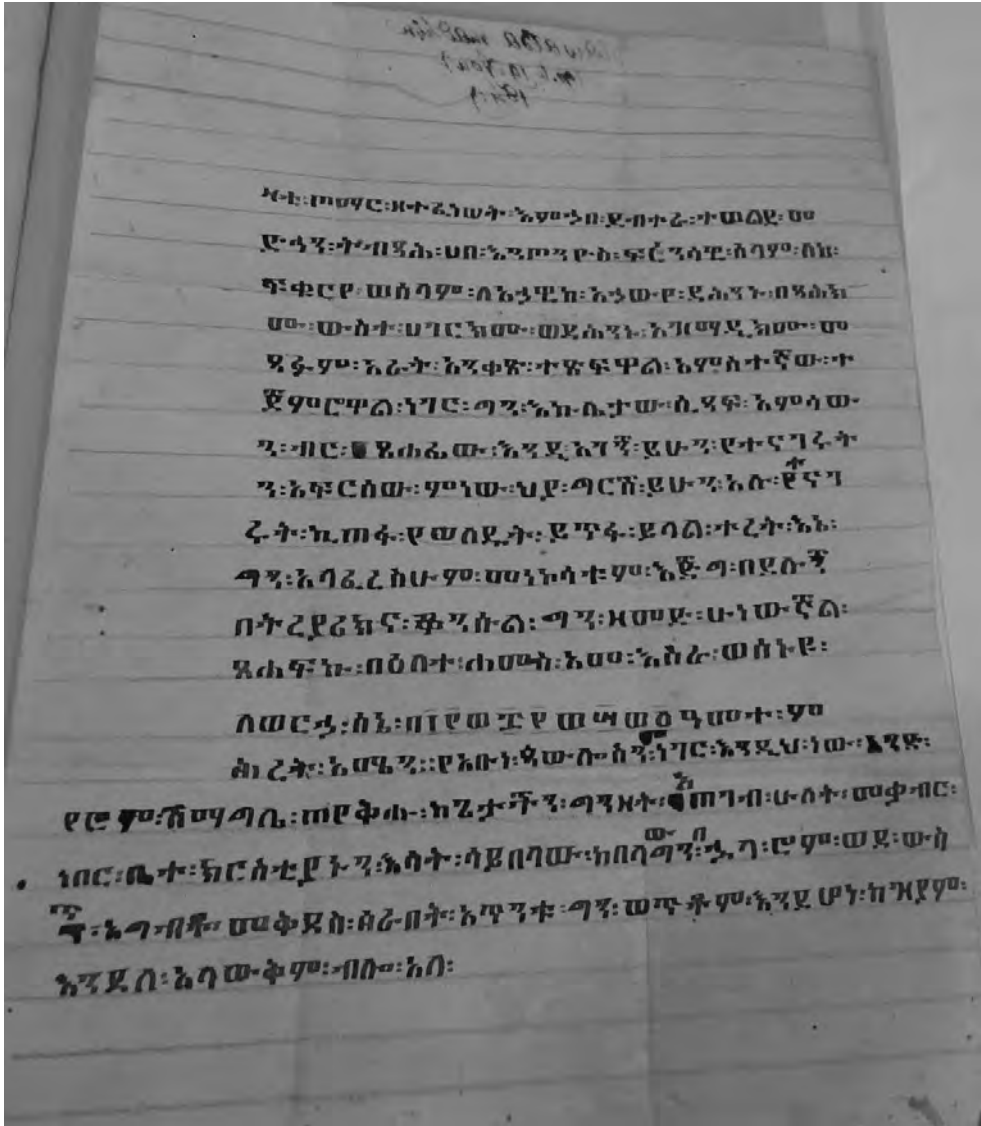 ዛቲ፡ጦማር፡ዘተፈነወት፡እምኀበ፡ደብተራ፡ተወልደ፡መ
ድኅን፡ትብጻሕ፡ሀበ፡እንጦንዮስ፡ፍርንሳዊ፡ሰላም፡ለከ፡
ፍቁርየ፡ወሰላም፡ለአኃዊከ፡አኃውየ፡ደሐንኑ፡በጻሕክ
ሙ፡ውስተ፡ሀገርክሙ፡ወደሐንኑ፡አዝማዲክሙ፡መ
ጻፉም፡አራት፡አንቀጽ፡ተጽፍዋል፡አምስተኛው፡ተ
ጀምሮዋል፡ነገር፡ግን፡እኩሌታው፡ሲጻፍ፡አምሳው
ን፡ብር፡ጸሐፊው፡እንዲአገኝ፡ይሁን፡የተናገሩት
ን፡አፍርሰው፡ምነው፡ህያ፡ማርሽ፡ይሁን፡አሉ፡የተናገ
ሩት፡ኪጠፋ፡የወለዱት፡ይጥፋ፡ይባል፡ተረት፡እኔ፡
ግን፡አሳፈረስሁም፡መነኮሳቱም፡እጅግ፡በደሉኝ
በትረያሪክና፡ቆንሱል፡ግን፡ዘመድ፡ሁነውኛል፡
ጸሐፍኩ፡በዕለተ፡ሐሙስ፡አመ፡አስራ፡ወሰኑዩ፡
ለወርኃ፡ሰኔ፡በ፲፻ወ፰፻ወ፵ወ፩ዓመተ፡ም
ሕረት፡አሜን፡፡የአቡነ፡ጳውሎስን፡ነገር፡እንዲህ፡ነው፡አንድ፡
የሮም፡ሽማግሌ፡ጠየቅሑ፡ከጌታችን፡ግንዘት፡አጠገብ፡ሁለት፡መቃብር፡
ነበር፡ቤተ፡ክርስቲያኑን፡እሳት፡ሳይበላው፡ከበላው፡በግን፡ኋላ፡ሮም፡ወደ፡ውስ
ጥ፡አግብቶ፡መቅደስ፡ሰራበት፡አጥንቱ፡ግን፡ወጥቶም፡እንደሆነ፡ከዝያም፡
እንዳለ፡አላውቅም፡ብሎ፡አለ፡